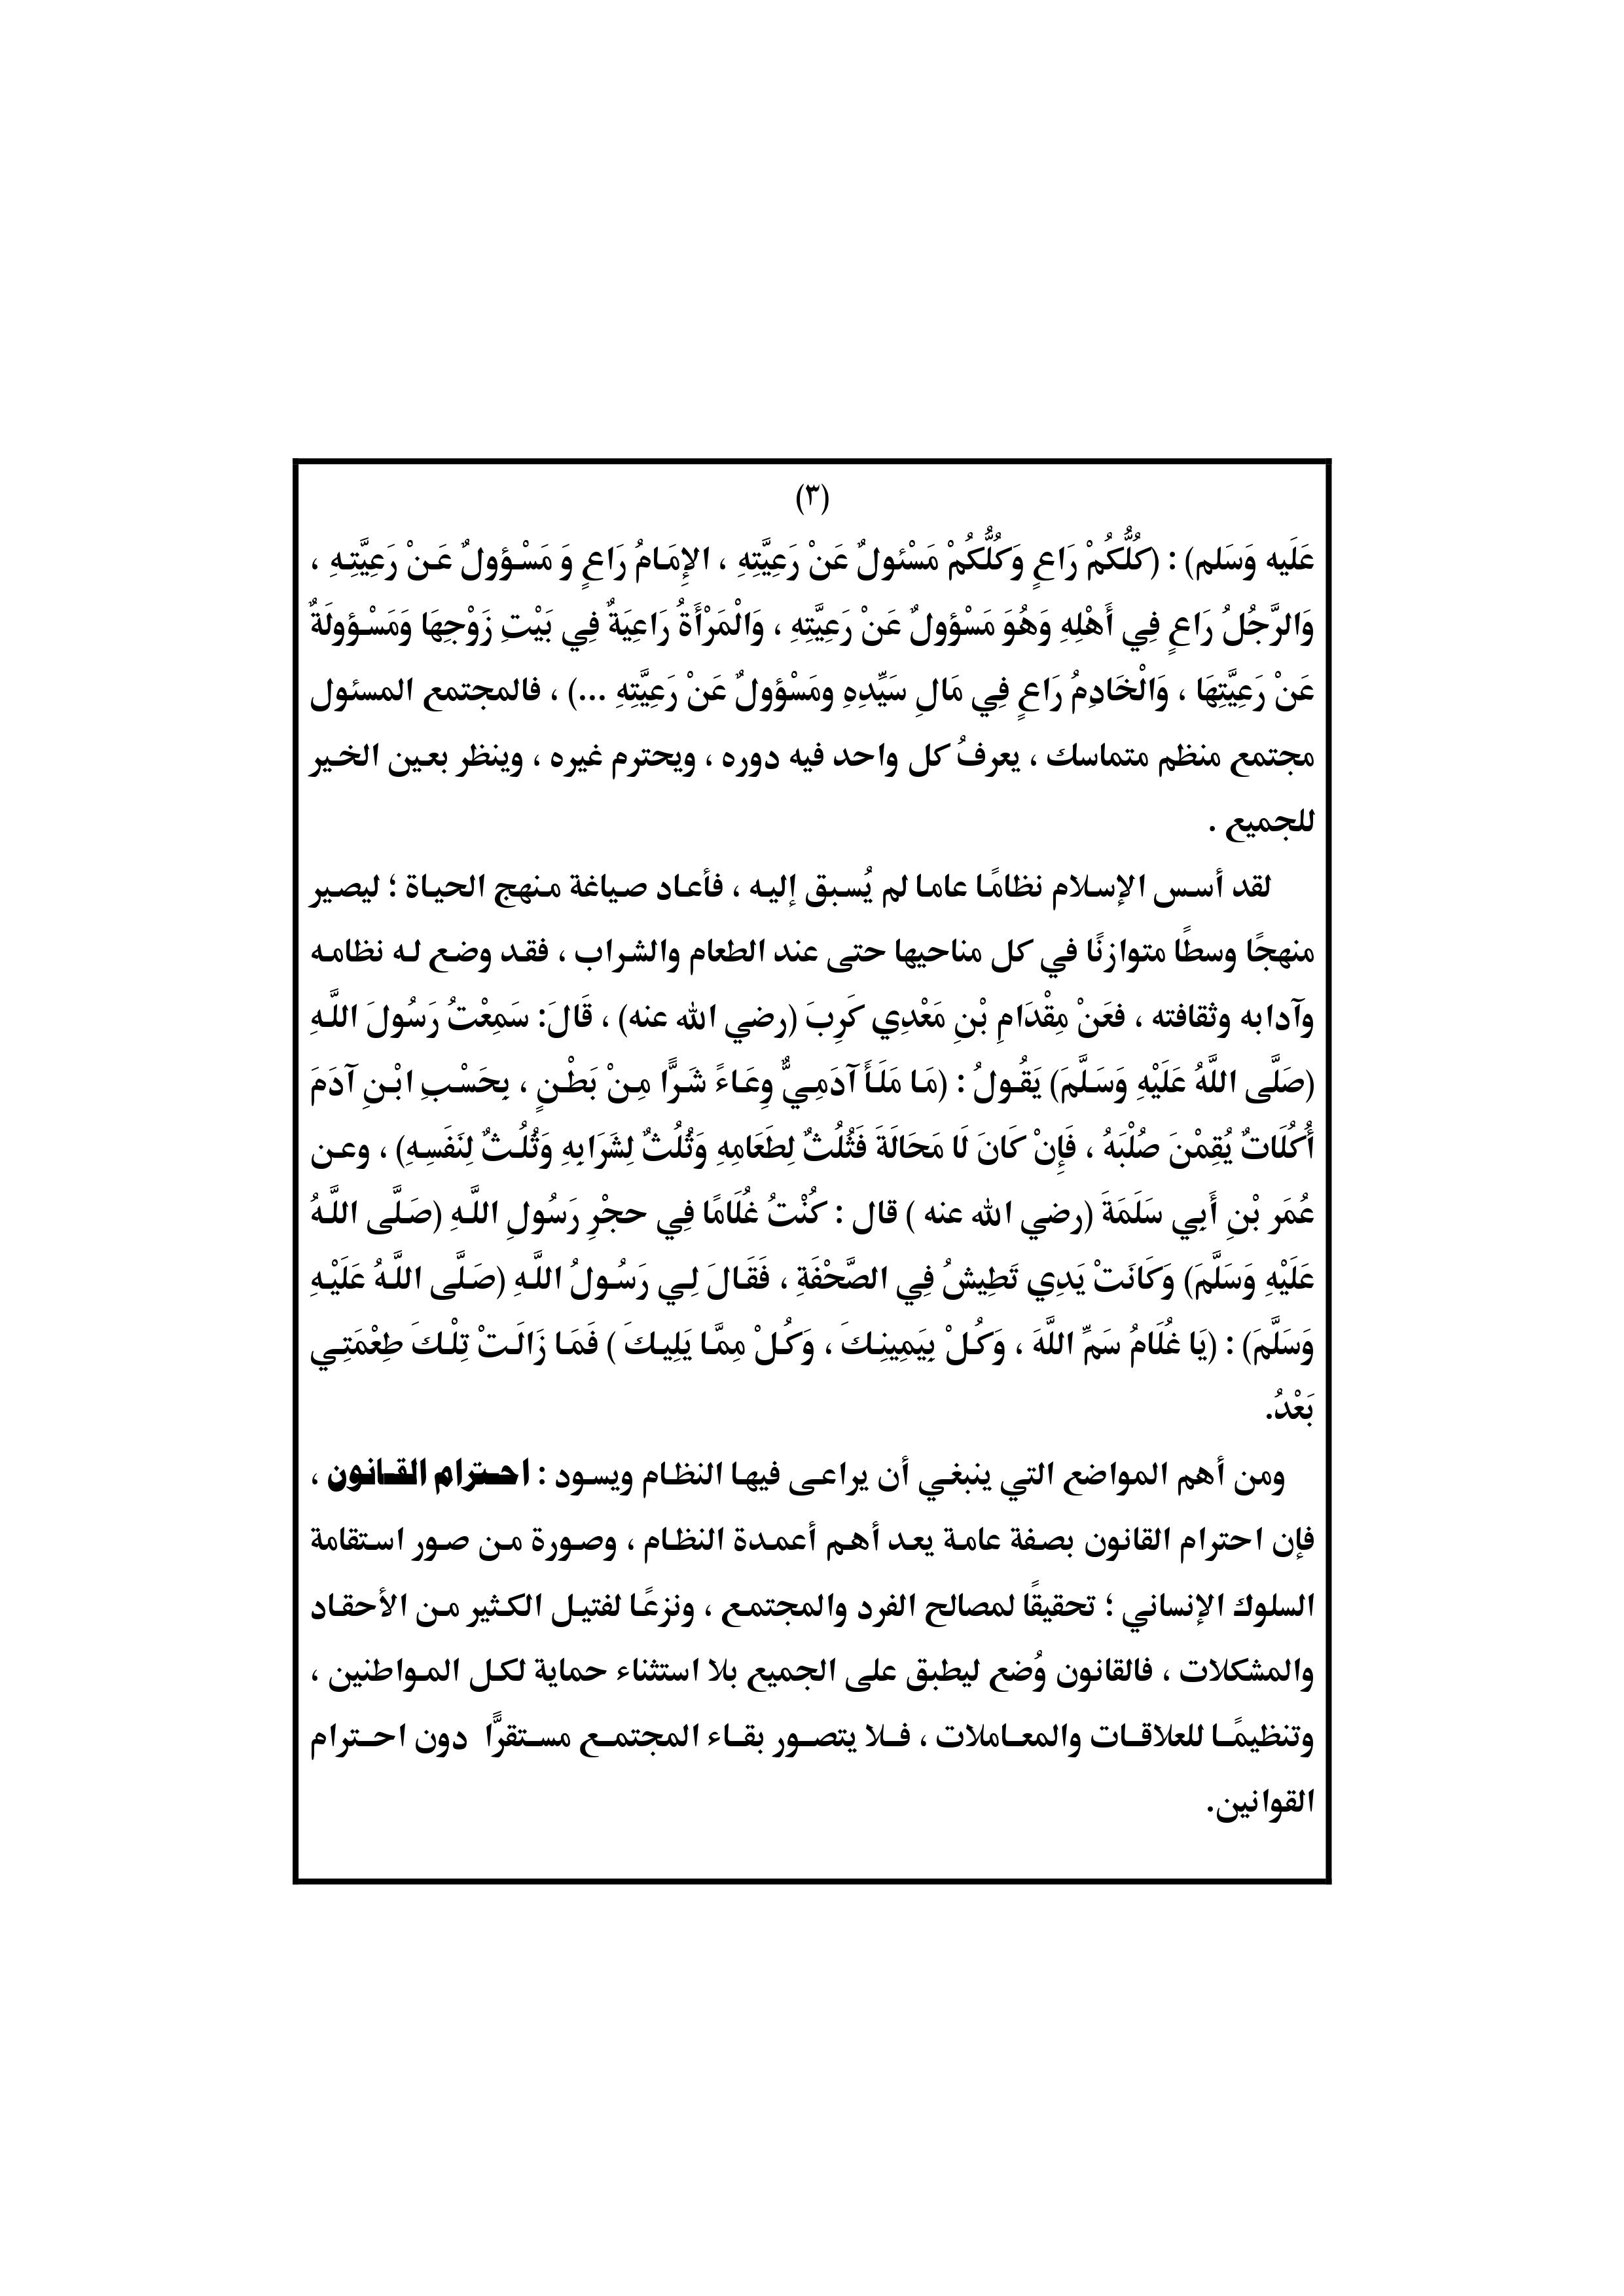 (٣)
عَلَيه وَسَلم) : (كُلُّكُمْ رَاعٍ وَكُلُّكُمْ مَسْئولٌ عَنْ رَعِيَّتِهِ ، الإِمَامُ رَاعٍ وَ مَسْؤولٌ عَنْ رَعِيَّتِهِ ،
وَالرَّجُلُ رَاعٍ فِي أَهْلِهِ وَهُوَ مَسْؤولٌ عَنْ رَعِيَّتِهِ ، وَالْمَرْأَةُ رَاعِيَةٌ فِي بَيْتِ زَوْجِهَا وَمَسْؤولَةٌ
عَنْ رَعِيَّتِهَا ، وَالْخَادِمُ رَاعٍ فِي مَالِ سَيِّدِهِ ومَسْؤولٌ عَنْ رَعِيَّتِهِ ...) ، فالمجتمع المسئول
مجتمع منظم متماسك ، يعرفُ كل واحد فيه دوره ، ويحترم غيره ، وينظر بعين الخير
للجميع .
لقد أسس الإسلام نظامًا عاما لم يُسبق إليه ، فأعاد صياغة منهج الحياة ؛ ليصير
منهجًا وسطًا متوازنًا في كل مناحيها حتى عند الطعام والشراب ، فقد وضع له نظامه
وآدابه وثقافته ، فعَنْ مِقْدَامِ بْنِ مَعْدِي كَرِبَ (رضي الله عنه) ، قَالَ: سَمِعْتُ رَسُولَ اللَّهِ
(صَلَّى اللَّهُ عَلَيْهِ وَسَلَّمَ) يَقُولُ : (مَا مَلَأَ آدَمِيٌّ وِعَاءً شَرًّا مِنْ بَطْنٍ ، بِحَسْبِ ابْنِ آدَمَ
أُكُلَاتٌ يُقِمْنَ صُلْبَهُ ، فَإِنْ كَانَ لَا مَحَالَةَ فَثُلُثٌ لِطَعَامِهِ وَثُلُثٌ لِشَرَابِهِ وَثُلُثٌ لِنَفَسِهِ) ، وعن
عُمَر بْنِ أَبِي سَلَمَةَ (رضي الله عنه ) قال : كُنْتُ غُلَامًا فِي حجْرِ رَسُولِ اللَّهِ (صَلَّى اللَّهُ
عَلَيْهِ وَسَلَّمَ) وَكَانَتْ يَدِي تَطِيشُ فِي الصَّحْفَةِ ، فَقَالَ لِي رَسُولُ اللَّهِ (صَلَّى اللَّهُ عَلَيْهِ
وَسَلَّمَ) : (يَا غُلَامُ سَمِّ اللَّهَ ، وَكُلْ بِيَمِينِكَ ، وَكُلْ مِمَّا يَلِيكَ ) فَمَا زَالَتْ تِلْكَ طِعْمَتِي
بَعْدُ.
ومن أهم المواضع التي ينبغي أن يراعى فيها النظام ويسود : احترام القانون ،
فإن احترام القانون بصفة عامة يعد أهم أعمدة النظام ، وصورة من صور استقامة
السلوك الإنساني ؛ تحقيقًا لمصالح الفرد والمجتمع ، ونزعًا لفتيل الكثير من الأحقاد
والمشكلات ، فالقانون وُضع ليطبق على الجميع بلا استثناء حماية لكل المواطنين ،
وتنظيمًا للعلاقات والمعاملات ، فلا يتصور بقاء المجتمع مستقرًّا دون احترام
القوانين.